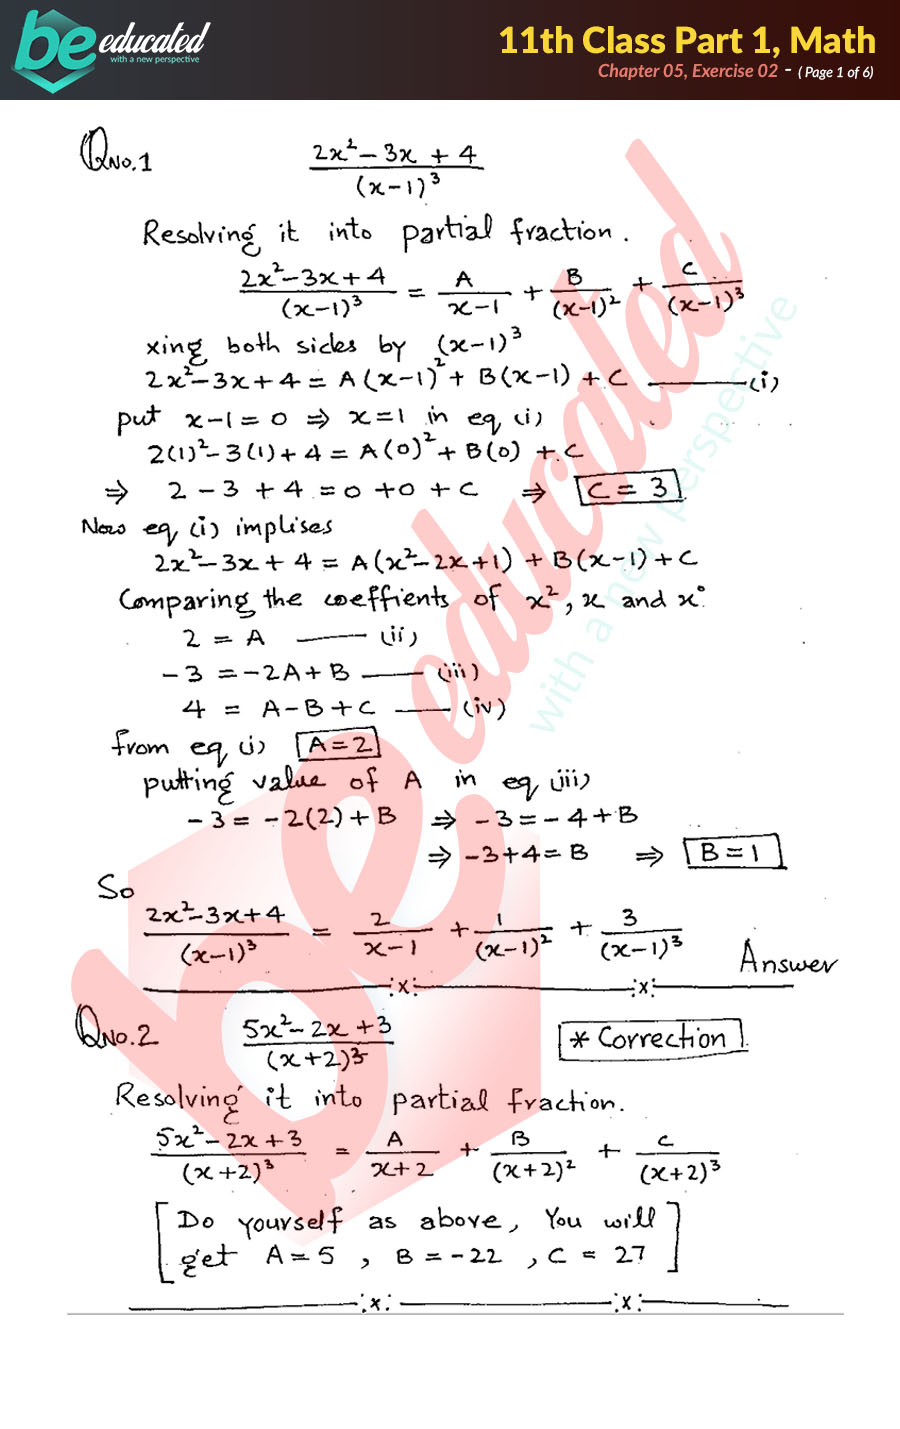 be educated
with a new perspective
11th Class Part 1, Math
Chapter 05, Exercise 02 - ( Page 1 of 6)
QNo.1 (2x²-3x+4)/(x-1)³
Resolving it into partial fraction.
(2x²-3x+4)/(x-1)³ = A/(x-1) + B/(x-1)² + C/(x-1)³
xing both sides by (x-1)³
2x²-3x+4 = A(x-1)² + B(x-1) + C ——— (i)
put x-1=0 ⇒ x=1 in eq (i)
2(1)²-3(1)+4 = A(0)² + B(0) + C
⇒ 2-3+4 = 0+0+C ⇒ C = 3
Now eq (i) implises
2x²-3x+4 = A(x²-2x+1) + B(x-1) + C
Comparing the coeffients of x², x and x°
2 = A ——— (ii)
-3 = -2A+B ——— (iii)
4 = A-B+C ——— (iv)
from eq (i) A=2
putting value of A in eq (iii)
-3 = -2(2)+B ⇒ -3 = -4+B
⇒ -3+4 = B ⇒ B = 1
So
(2x²-3x+4)/(x-1)³ = 2/(x-1) + 1/(x-1)² + 3/(x-1)³ Answer
QNo.2 (5x²-2x+3)/(x+2)³ * Correction
Resolving it into partial fraction.
(5x²-2x+3)/(x+2)³ = A/(x+2) + B/(x+2)² + C/(x+2)³
[Do yourself as above, You will
get A=5, B=-22, C=27]
be educated
with a new perspective